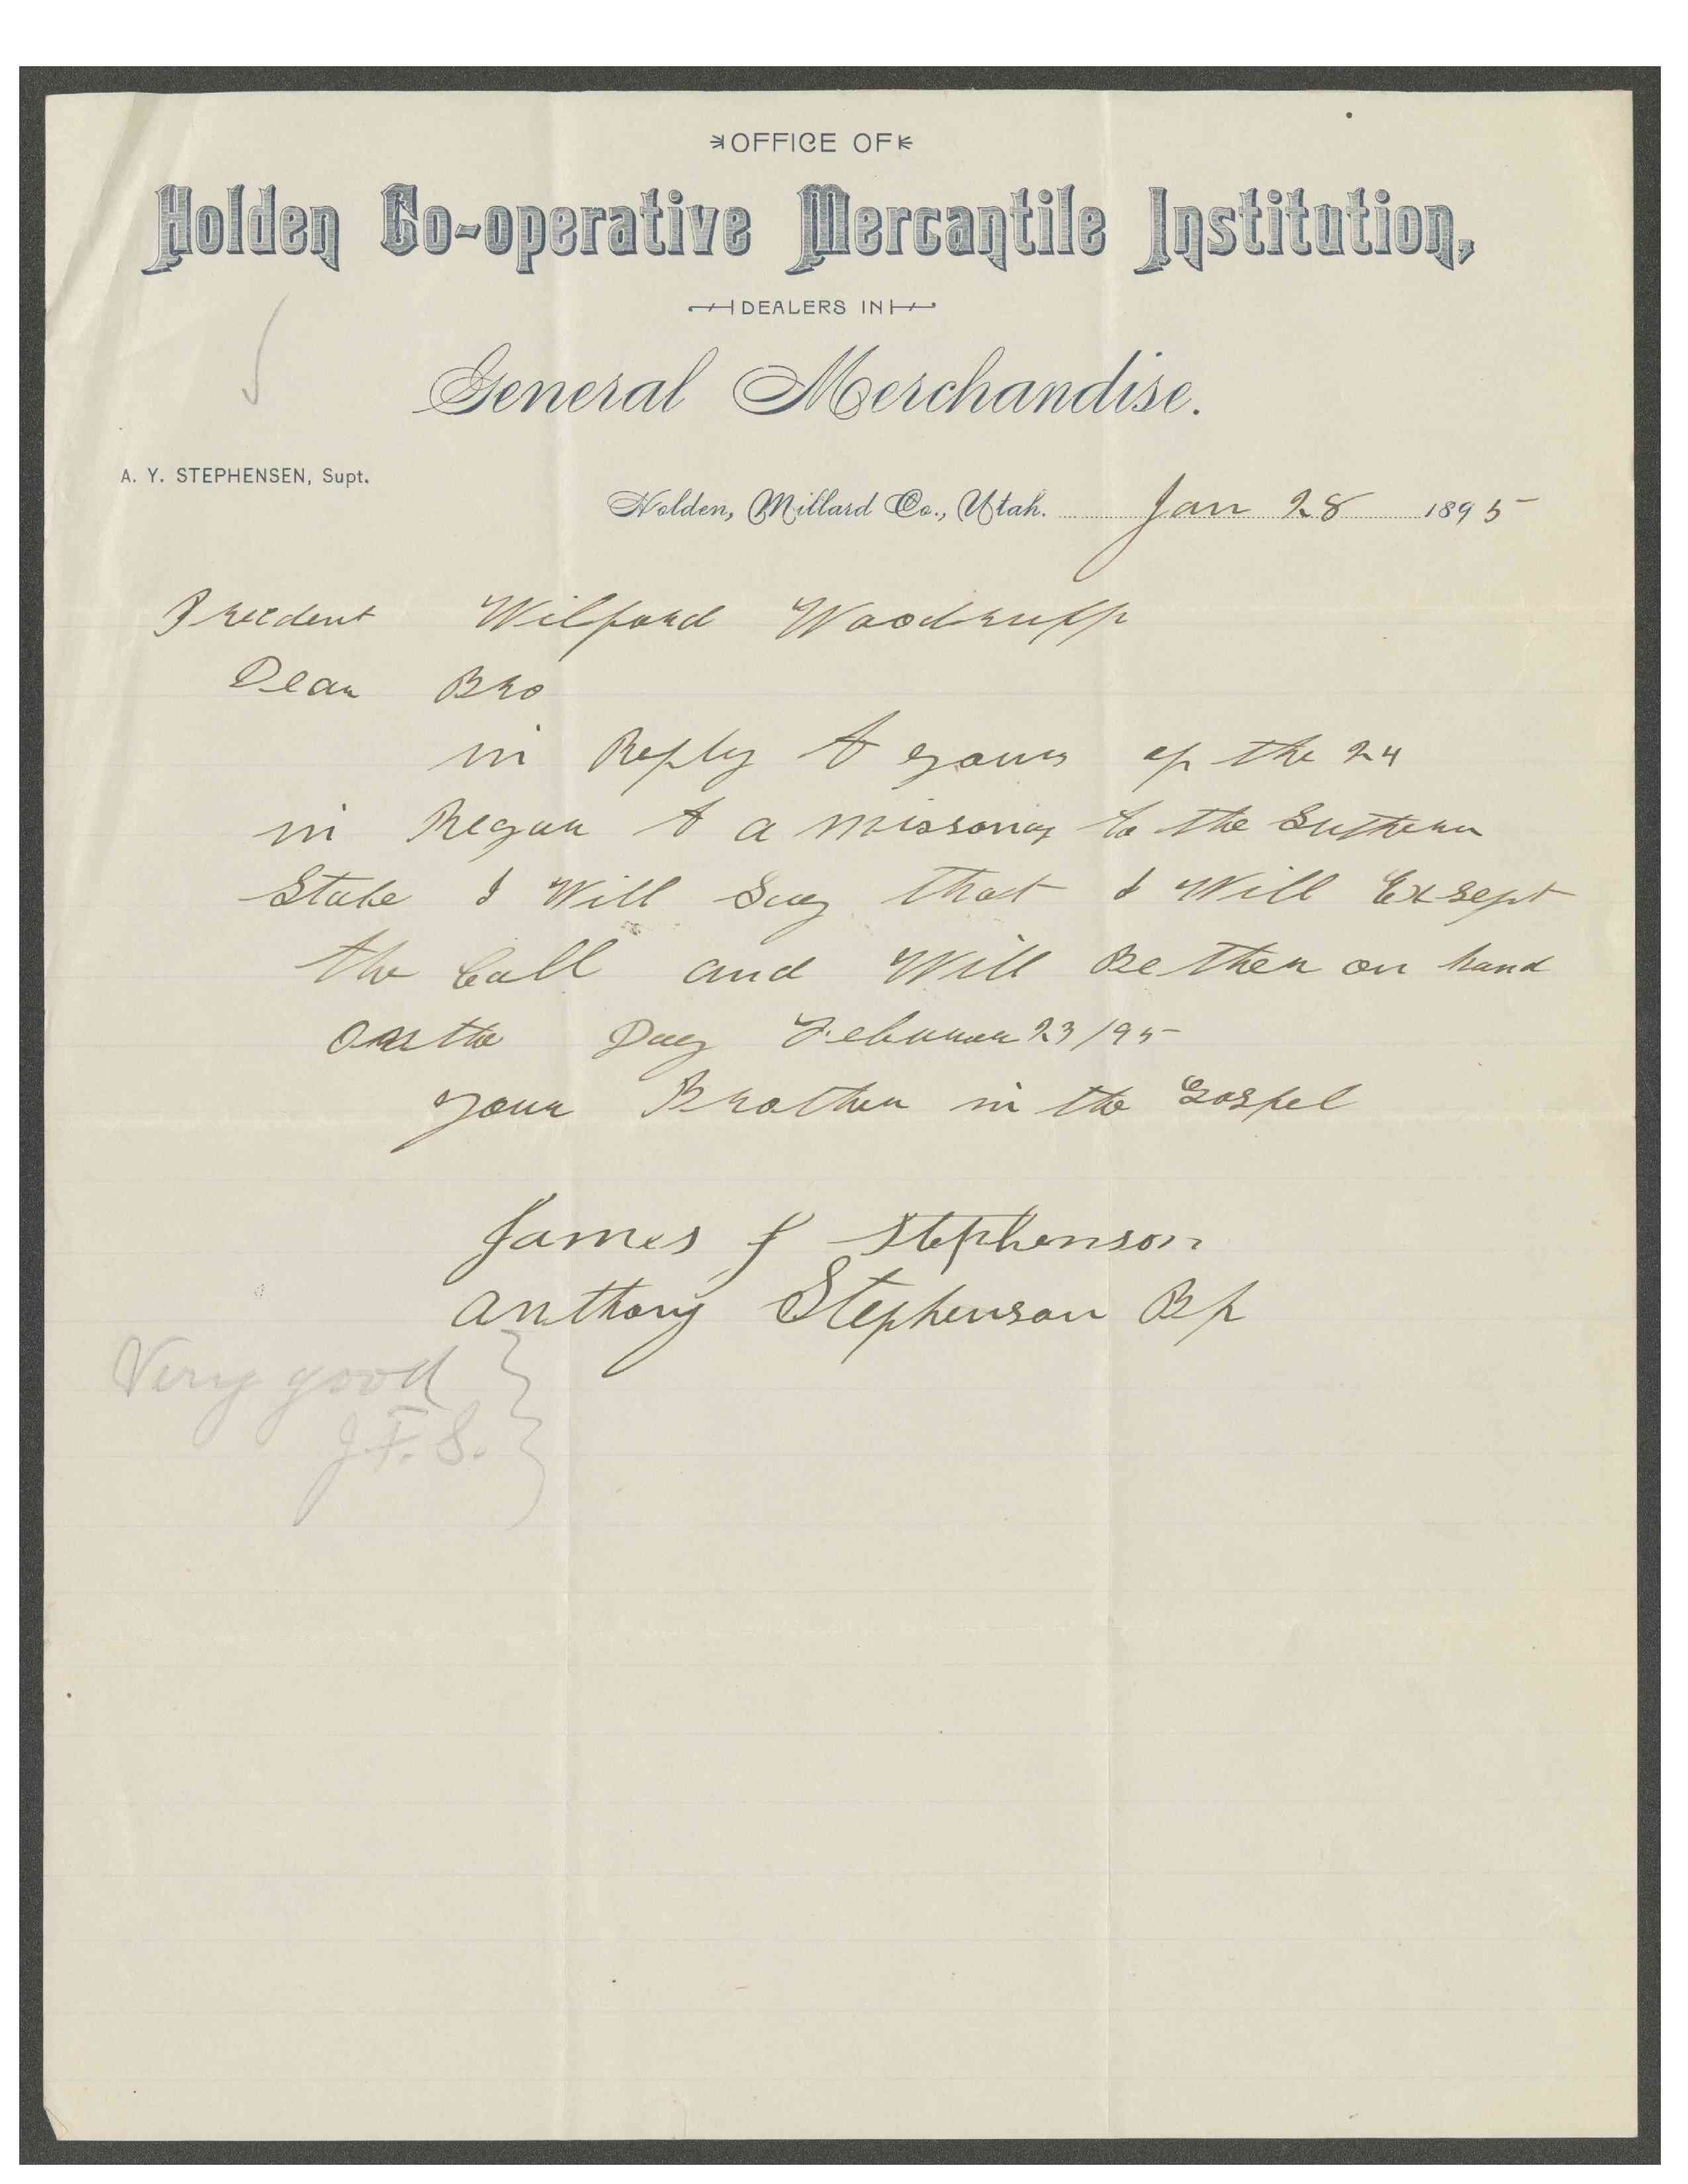 OFFICE OF
Holden Co-operative Mercantile Institution,
DEALERS IN
General Merchandise.
A. Y. STEPHENSEN, Supt.
Holden, Millard Co., Utah. Jan 28 1895
Wilford Woodruff
Dear Bro
in Reply to yours of the 24
in Regar to a missonay to the Suthern
State I Will Say that I Will Exsept
the Call and Will Be ther on hand
the Day 23/95
your Brother in the Gospel
James J Stephenson
Anthony Stephenson Bp
Very good
J.F.S.